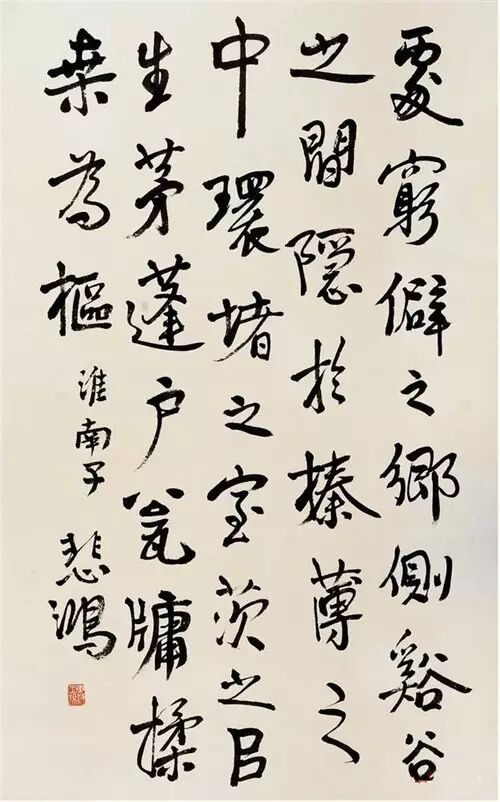 處窮僻之鄉側谿谷
之間隱於榛薄之
中環堵之室茨之㠯
生茅蓬户瓮牗揉
桒為樞
淮南子
悲鴻